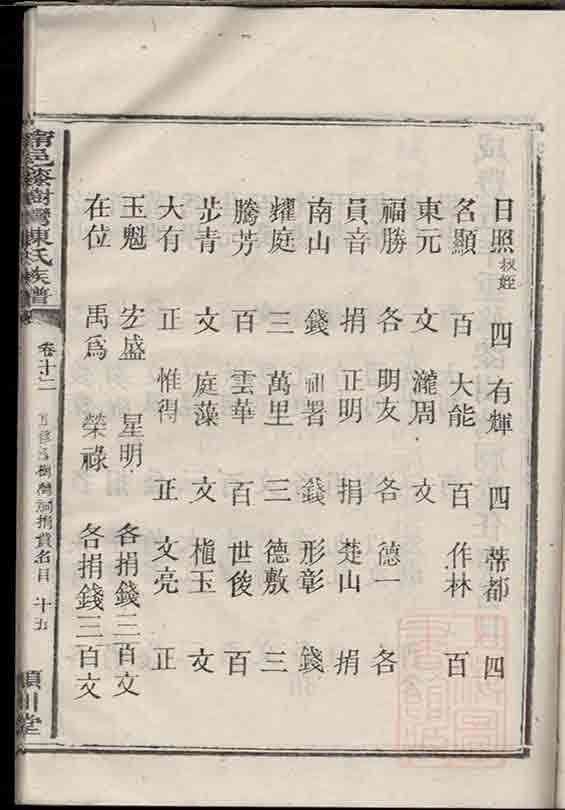 日照 叔姪 四 有輝 四 蒂都 四
名顯 百 大能 百 作林 百
東元 文 瀧周 文
福勝 各 明友 各 德一 各
員音 捐 正明 捐 楚山 捐
南山 錢 祖署 錢 形彰 錢
耀庭 三 萬里 三 德敷 三
騰芳 百 雲華 百 世俊 百
步青 文 庭藻 文 植玉 文
大有 正 惟得 正 文亮 正
玉魁 宏盛 星明 各捐錢三百文
在位 禹爲 榮祿 各捐錢三百文
甯邑漆樹灣陳氏族譜 卷十二 樹灣祠捐貲名目 十五 潁川堂